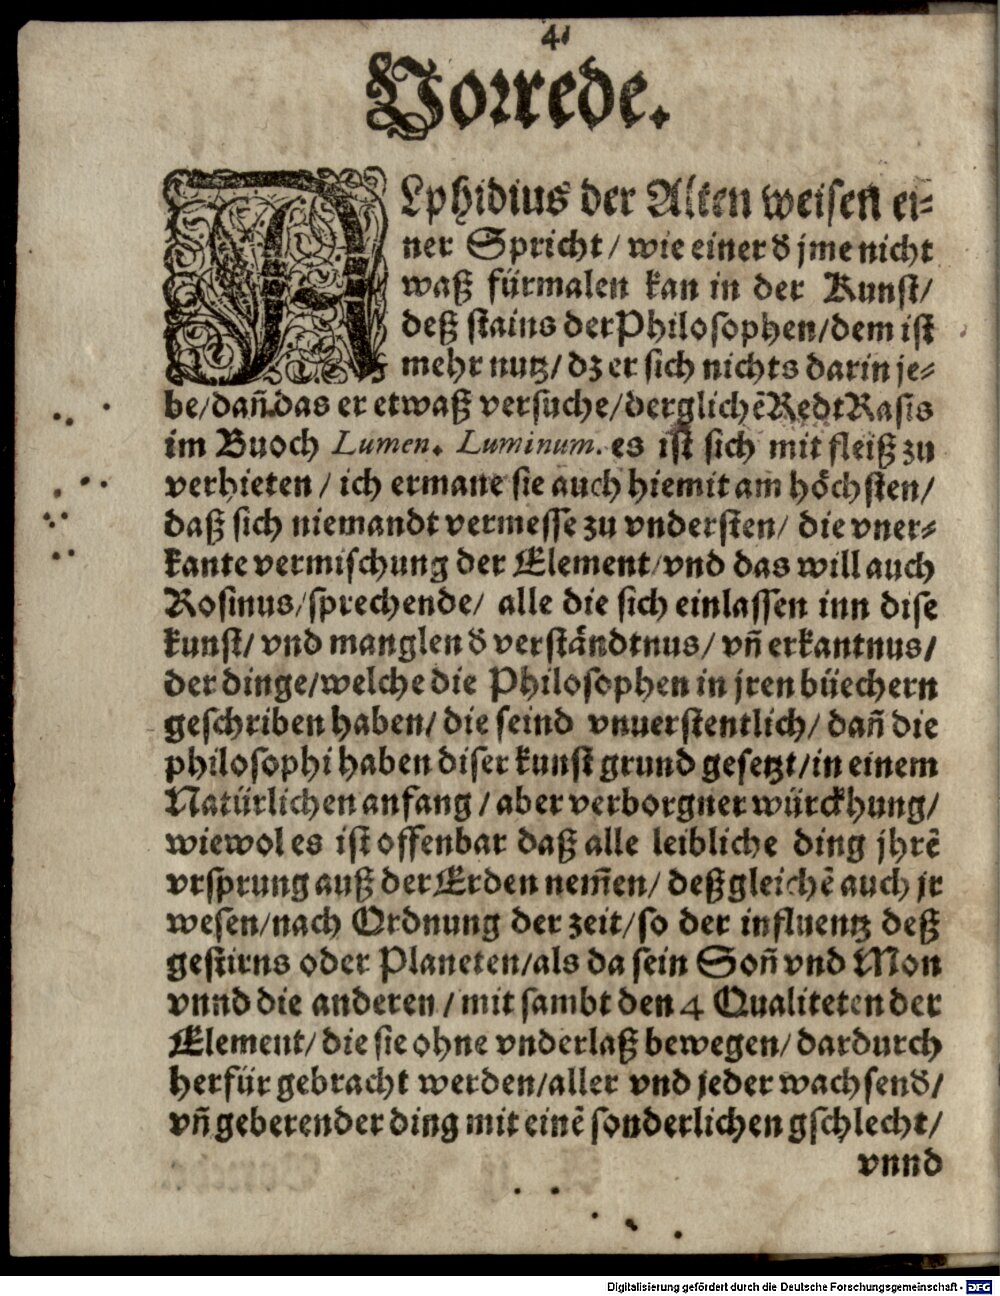 4
Vorrede.
ALphidius der Alten weisen ei-
ner Spricht/ wie einer d jme nicht
waß fürmalen kan in der Kunst/
deß stains der Philosophen/ dem ist
mehr nutz/ dz er sich nichts darin je-
be/ dañ das er etwaß versuche/ derglichẽ Redt Rasis
im Buoch Lumen. Luminum. es ist sich mit fleiß zu
verbieten/ ich ermane sie auch hiemit am höchsten/
daß sich niemandt vermesse zu vndersten/ die vner-
kante vermischung der Element/ vnd das will auch
Rosinus/ sprechende/ alle die sich einlassen inn dise
kunst/ vnd manglen d verständtnus/ vñ erkantnus/
der dinge/ welche die Philosophen in jren büechern
geschriben haben/ die seind vnuerstentlich/ dañ die
philosophi haben diser kunst grund gesetzt/ in einem
Natürlichen anfang/ aber verborgner würckhung/
wiewol es ist offenbar daß alle leibliche ding jhrẽ
vrsprung auß der Erden nem̃en/ deßgleichẽ auch jr
wesen/ nach Ordnung der zeit/ so der influentz deß
gestirns oder Planeten/ als da sein Soñ vnd Mon
vnnd die anderen/ mit sambt den 4 Qualiteten der
Element/ die sie ohne vnderlaß bewegen/ dardurch
herfür gebracht werden/ aller vnd jeder wachsend/
vñ geberender ding mit einẽ sonderlichen gschlecht/
vnnd
Digitalisierung gefördert durch die Deutsche Forschungsgemeinschaft - DFG